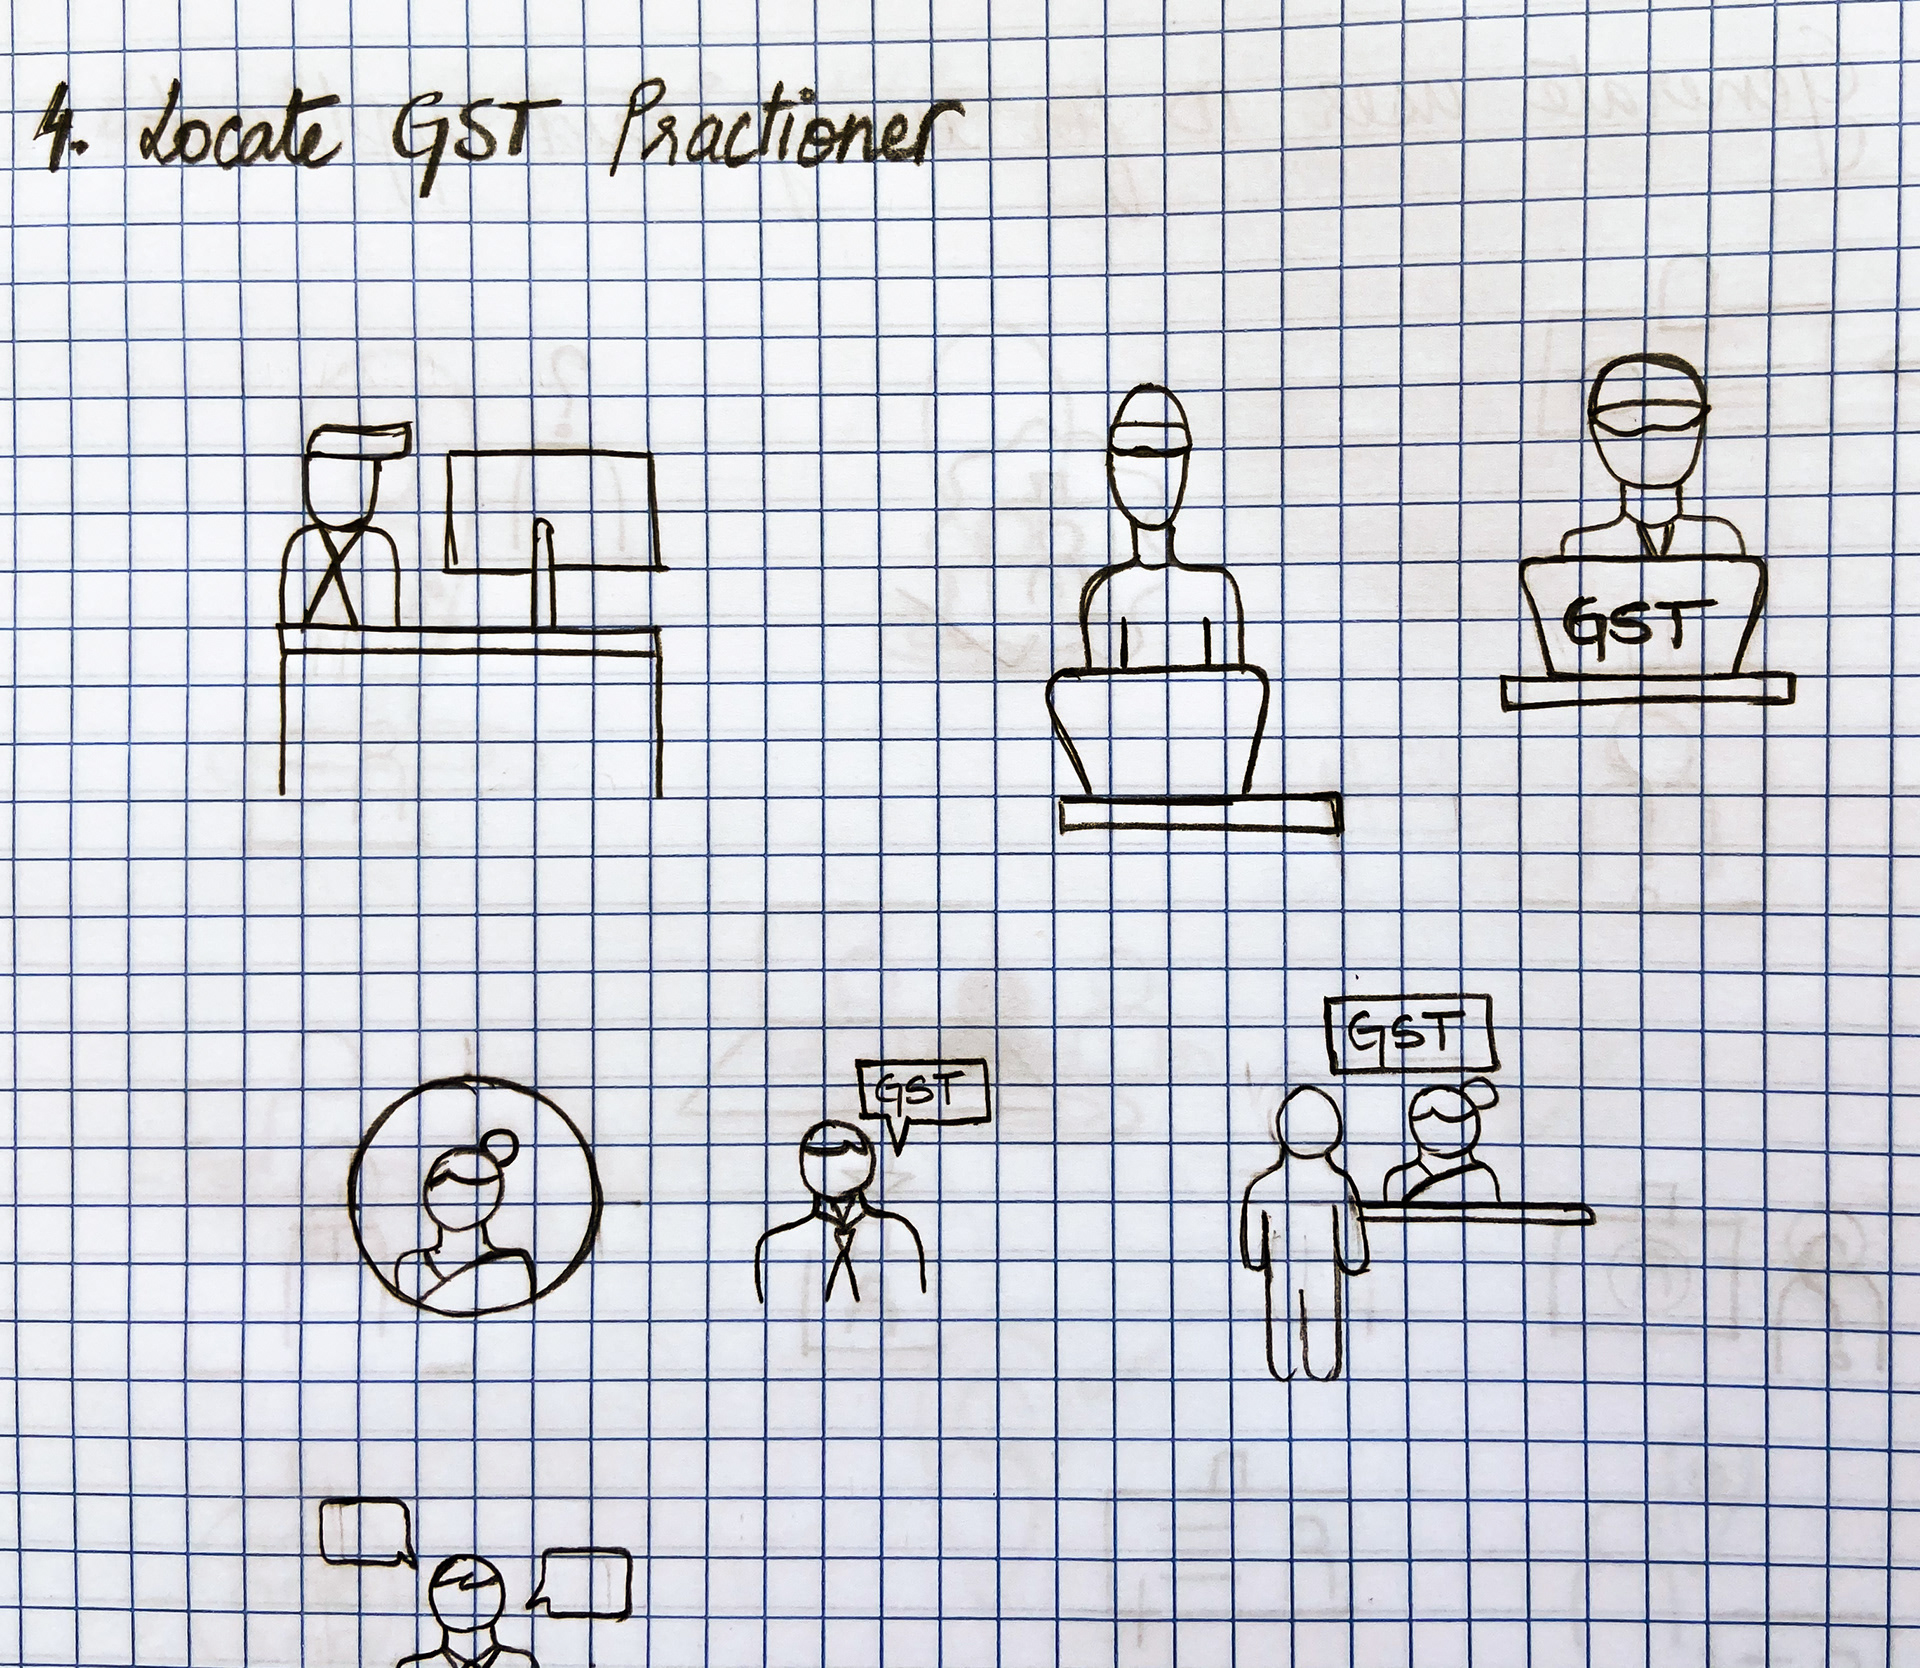 4. Locate GST Practioner
GST
GST
GST